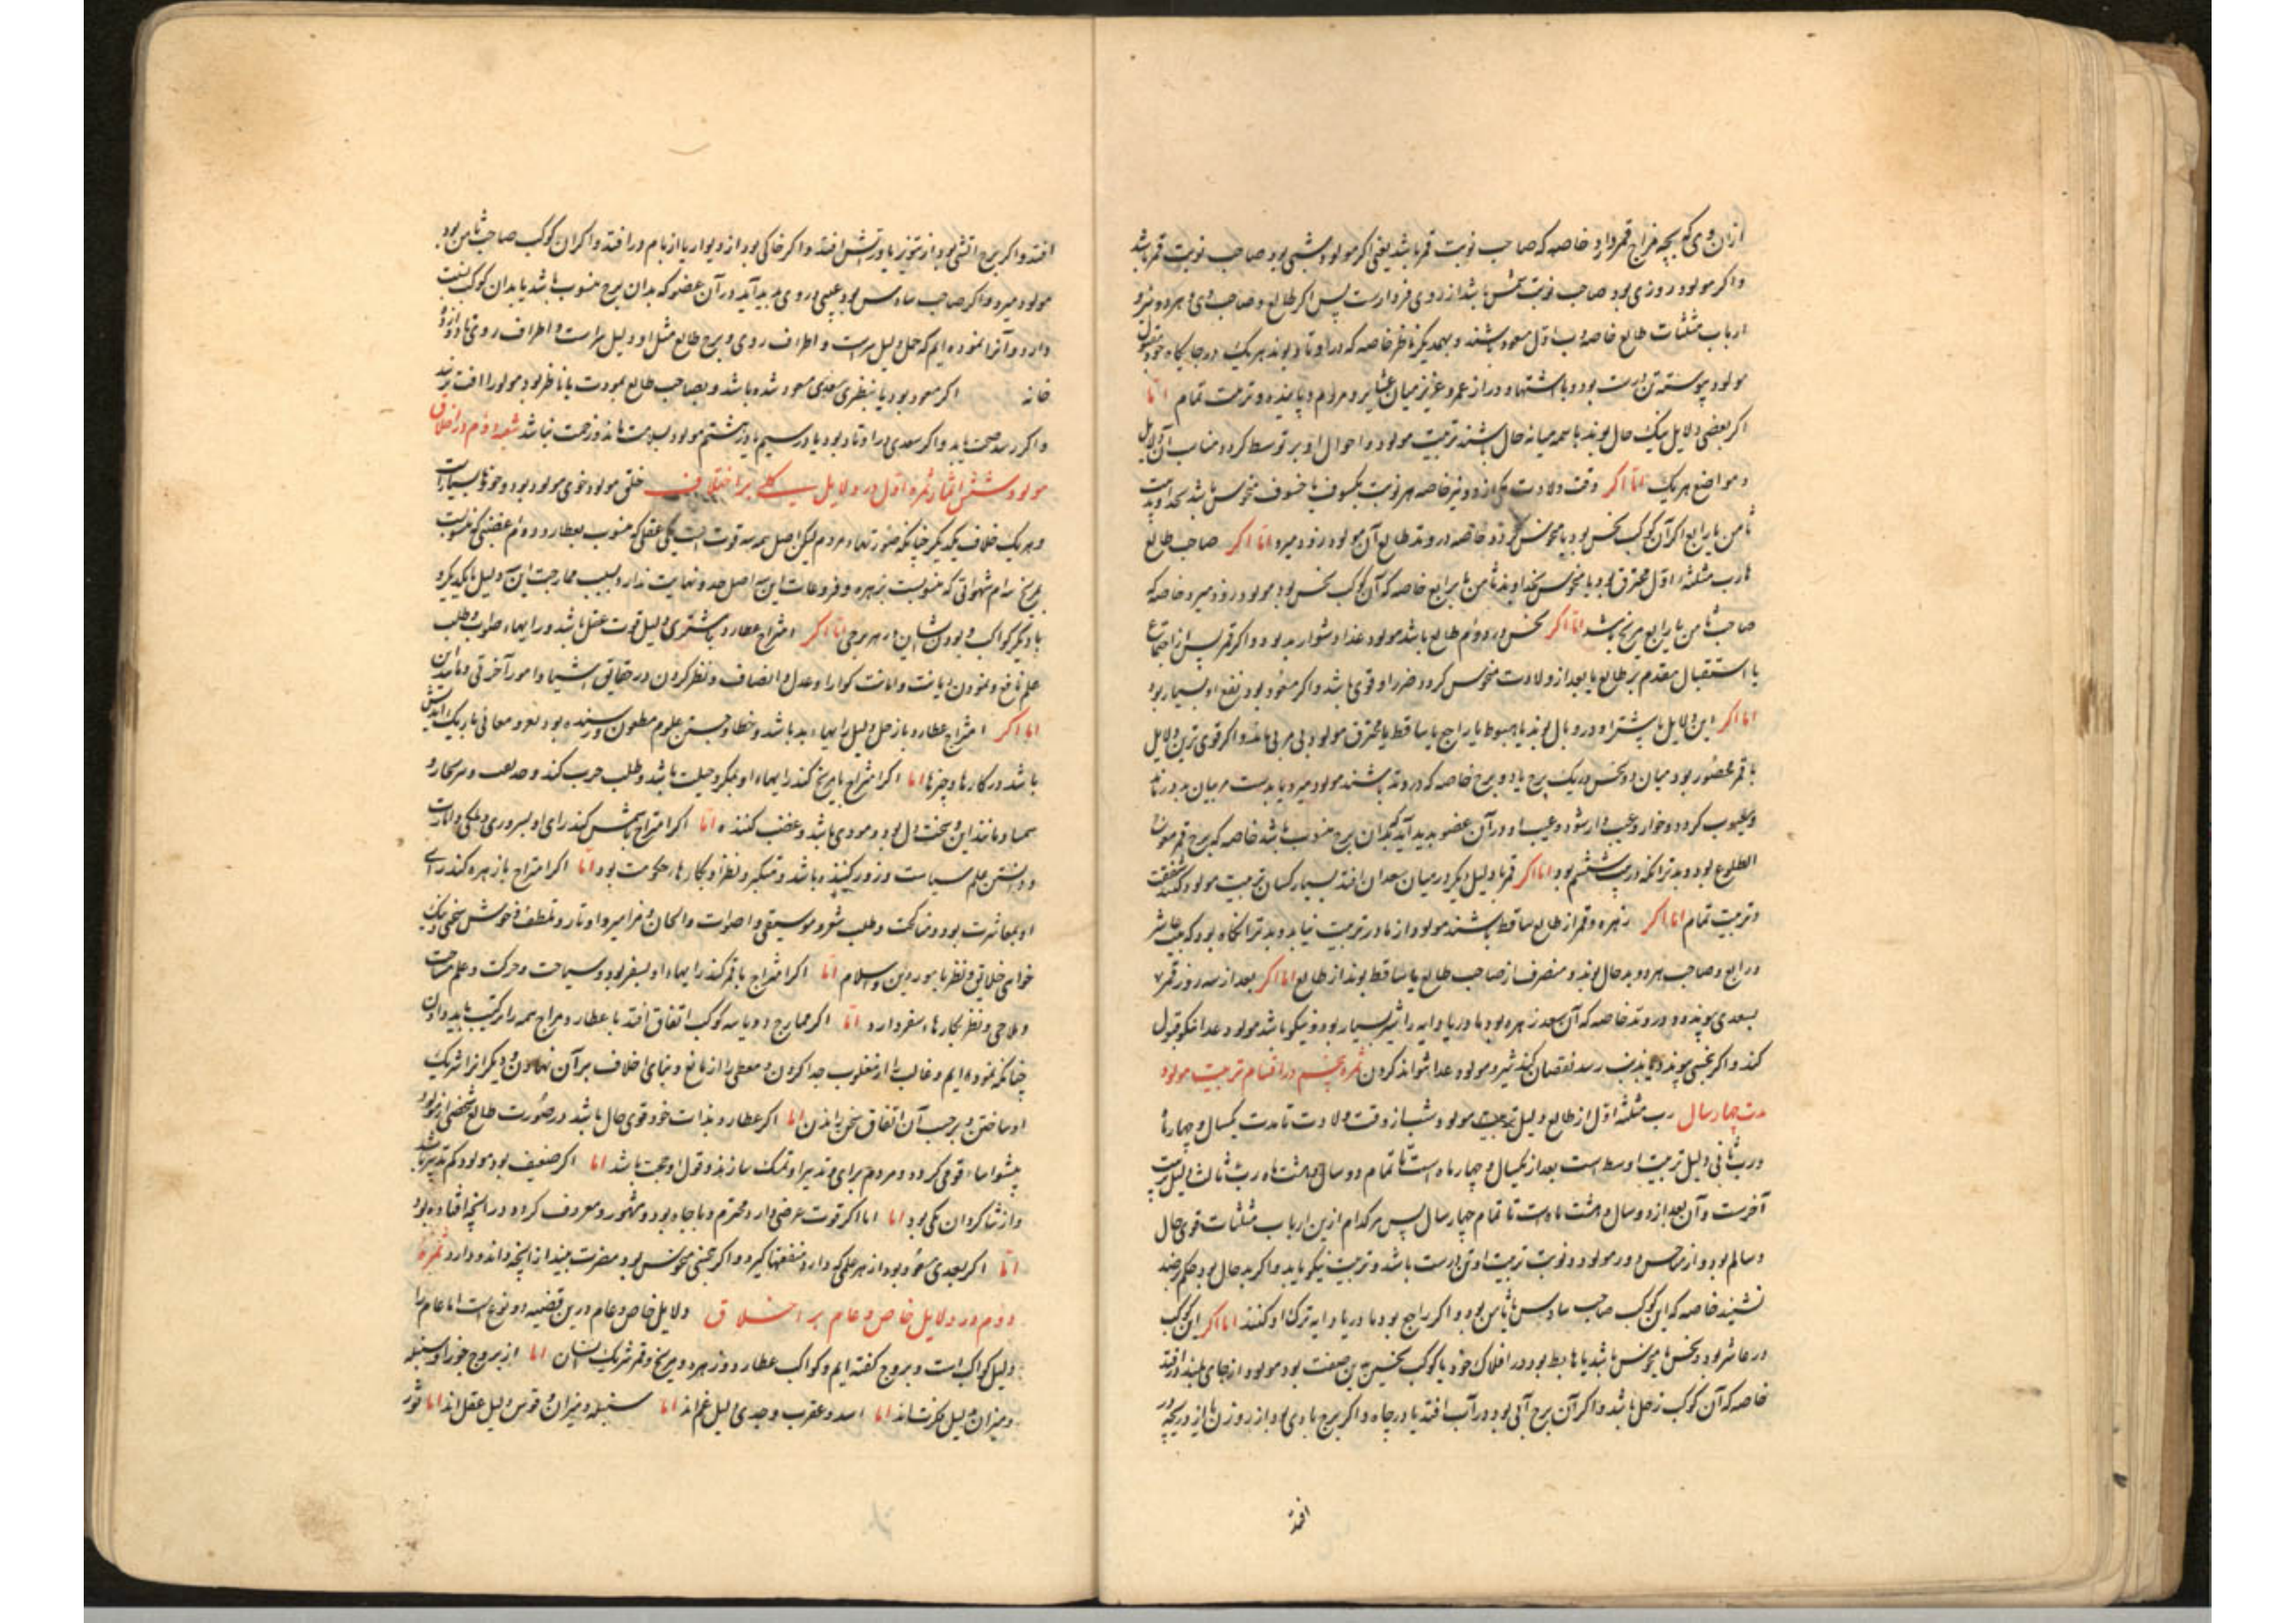 ازان روی که بچه مزاج قمر دارد خاصه که صاحب نوبت قمر باشد یعنی اکر مولود شبی بود صاحب نوبت قمر باشد
واکر مولود روزی بود صاحب نوبت شمس باشد از روی پس اکر طالع و صاحب وی و هر دو نیر و
ارباب مثلثات طالع خاصه رب اول مسعود باشند و بهمدیکر ناظر خاصه که در اوتاد بوند هر یک در جایکاه خود مقبول
مولود پیوسته تن درست بود و با اشتها و دراز عمر و عزیز میان عشایر و مردم و پاینده و تربیت تمام اما
اکر بعضی دلایل نیک حال بوند یا همه میانه حال باشند تربیت مولود و احوال او بر توسط کردد مناسب آن دلایل
و مواضع هر یک اما اکر وقت ولادت یکی از دو نیر خاصه هر نوبت بکسوف یا خسوف منحوس باشد بخداوند بیت
ثامن یا رابع اکر آن کوکب نحس بود یا منحوس کردد خاصه در وتد طالع آن مولود زود میرد اما اکر صاحب طالع
یا رب مثلثه اول محترق بود یا منحوس بخداوند ثامن یا برابع خاصه که آن کوکب نحس بود مولود زود میرد خاصه که
صاحب ثامن یا رابع مریخ باشد اما اکر نحس در دوم طالع باشد مولود غذا دشوار یابد و اکر قمر پس از اجتماع
یا استقبال مقدم بر طالع یا بعد از ولادت منحوس کردد ضرر او قوی باشد و اکر مسعود بود نفع او بسیار بود
اما اکر این دلایل یا بیشتر او در وبال بوند یا هبوط یا راجع یا ساقط یا محترق مولود بی مربی ماند و اکر قوی ترین دلایل
با قمر محصور بود میان دو نحس در یک برج یا دو برج خاصه که در وتد باشند مولود میرد یا بدست مربیان بد درماند
و معیوب کردد و خوار و عیب دار شود و عیب او در آن عضو بدید آید که بدان برج منسوب باشد خاصه که برج قمر
الطلوع بود و بدتر انکه در بیت ششم بود اما اکر قمر یا دلیل دیکر در میان سعدان افتد بسیار کسان تربیت مولود کنند بشفقت
و تربیت تمام اما اکر زهره و قمر از طالع ساقط باشند مولود از مادر تربیت نیابد و بدتر انکاه بود که بیت عاشر
و رابع و صاحب هر دو بد حال بوند و منصرف از صاحب طالع یا ساقط بوند از طالع اما اکر بعد از سه روز قمر
بسعدی پیوندد در وتد خاصه که آن سعد زهره بود مادر یا دایه را شیر بسیار بود و نیکو باشد مولود غذا نیکو قبول
کند و اکر بنحسی پیوندد یا بذنب رسد نقصان کند شیر و مولود غذا نتواند کردن ثمره پنجم در اقسام تربیت مولود
مدت چهار سال رب مثلثه اول از طالع دلیل تربیت مولود باشد از وقت ولادت تا مدت یکسال و چهار ماه
و رب ثانی دلیل تربیت اوسط است بعد از یکسال و چهار ماه است تا تمام دو سال و هشت ماه و رب ثالث دلیل تربیت
آخرست و آن بعد از دو سال و هشت ماه است تا تمام چهار سال پس هر کدام ازین ارباب مثلثات قوی حال
و سالم بود و از نحس دور مولود در نوبت تربیت او تن درست باشد و تربیت نیکو یابد و اکر بد حال بود
خاصه که این کوکب صاحب سادس یا ثامن بود و اکر راجع بود مادر یا دایه ترک او کنند اما اکر این کوکب
در عاشر بود و نحس یا منحوس باشد یا هابط بود در افلاک خود یا کوکب نحس بدین صفت بود مولود از جای بلند افتد
خاصه که آن کوکب زحل باشد و اکر آن برج آبی بود در آب افتد یا در چاه و اکر برج بادی بود از روزن یا از دریچه در
افتد
افتد و اکر برج اتشی بود از تنور یا در آتش افتد و اکر خاکی بود از دیوار یا از بام در افتد و اکر ان کوکب صاحب ثامن بود
مولود میرد و اکر صاحب سادس بود عیبی در وی بدید آید در آن عضو که بدان برج منسوب باشد یا بدان کوکب نسبت
دارد و آنرا نموده ایم که حمل دلیل سر است و اطراف روی و برج طالع مثل او دلیل سر است و اطراف روی
خانه اکر مسعود بود یا بنظری سعدی مسعود شده باشد و بصاحب طالع بمودت یا ناظر بود مولود را افت نرسد
و اکر رسد صحت یابد و اکر سعدی در اوتاد بود یا در سیم یا در هشتم مولود بسلامت ماند و زحمت نباشد شعبه دوم در اخلاق
مولود شش ثمره اول در دلایل کلی بر اخلاق خلق مولود خوی مولود بود و خوها بسیارست
و هر یک خلاف یکدیکر چنانکه صورتهاء مردم لیکن اصل همه سه قوت است یکی عقلی که منسوب بعطارد دوم غضبی که منسوبست
بمریخ سوم شهوانی که منسوبست بزهره و فروعات این سه اصل حد و نهایت ندارد بسبب ممازجت این سه دلیل با یکدیکر و
با دیکر کواکب و بودن ایشان در هر برجی اما اکر امتزاج عطارد با مشتری دلیل قوت عقل باشد و رایهاء صواب و طلب
علم نافع و نمودن دیانت و امانت و عدل و انصاف و نظر کردن در حقایق اشیا و امور آخرتی و مانند این
اما اکر امتزاج عطارد با زحل دلیل رایهاء بد باشد و خطا و جستن علوم مطعون و بود بغور معانی باریک اندیشی
باشد در کارها و چیزها اما اکر امتزاج با مریخ کند رایهاء او بمکر و حیلت باشد و طلب حرب کند و
و مانند این و سخت دل بود و موذی باشد و غضب کننده اما اکر امتزاج با شمس کند رای او بسروری و ملکی و امارت
و دانستن علم سیاست و زور کننده باشد و متکبر و نظر او بکارهاء حکومت بود اما اکر امتزاج با زهره کند رای
او بمعاشرت بود و مناکحت و طلب شعر و موسیقی و اصوات و الحان و مزامیر و اوتار و تلطف و خوش سخنی و نیک
خواهی خلایق و نظر بامور دین و اسلام اما اکر امتزاج با قمر کند رایهاء او بسفر بود و سیاحت و حرکت و علم مساحت
و ملاحی و نظر بکارهاء سفر دارد اما اکر ممازج دو یا سه کوکب اتفاق افتد با عطارد مزاج همه را ترکیب باید دادن
چنانکه نموده ایم و غالب را از مغلوب جدا کردن و معطی را از مانع و بنای اخلاق بر آن نهادن و دیکر انرا شریک
او ساختن و بر حسب آن اتفاق سخن راندن اما اکر عطارد بذات خود قوی حال باشد در صورت طالع شخصی از مولود
پیشواء قومی کردد و مردم برای و تدبیر او تمسک سازند و قول او حجت باشد اما اکر ضعیف بود مولود کم تدبیر باشد
و از شاکردان یکی بود اما اما اکر قوت عرضی دارد محترم و با جاه بود و مشهور و معروف کردد در انچه افتاده بود
اما اکر بسعدی مسعود بود از هر علمی که دارد منفعتها کیرد و اکر بنحسی منحوس بود مضرت بیند از انچه داند و دارد ثمره
دوم در دلایل خاص و عام بر اخلاق دلایل خاص و عام درین قضیه دو نوع است اما عام را
دلیل کواکب است و بروج کفته ایم و کواکب عطارد و زهره و مریخ و قمر شریک ایشان اما از بروج جوزا و سنبله
و میزان دلیل فکرتند اما اسد و عقرب و جدی دلیل غم اند اما سنبله و میزان و قوس دلیل عقل اند اما ثور